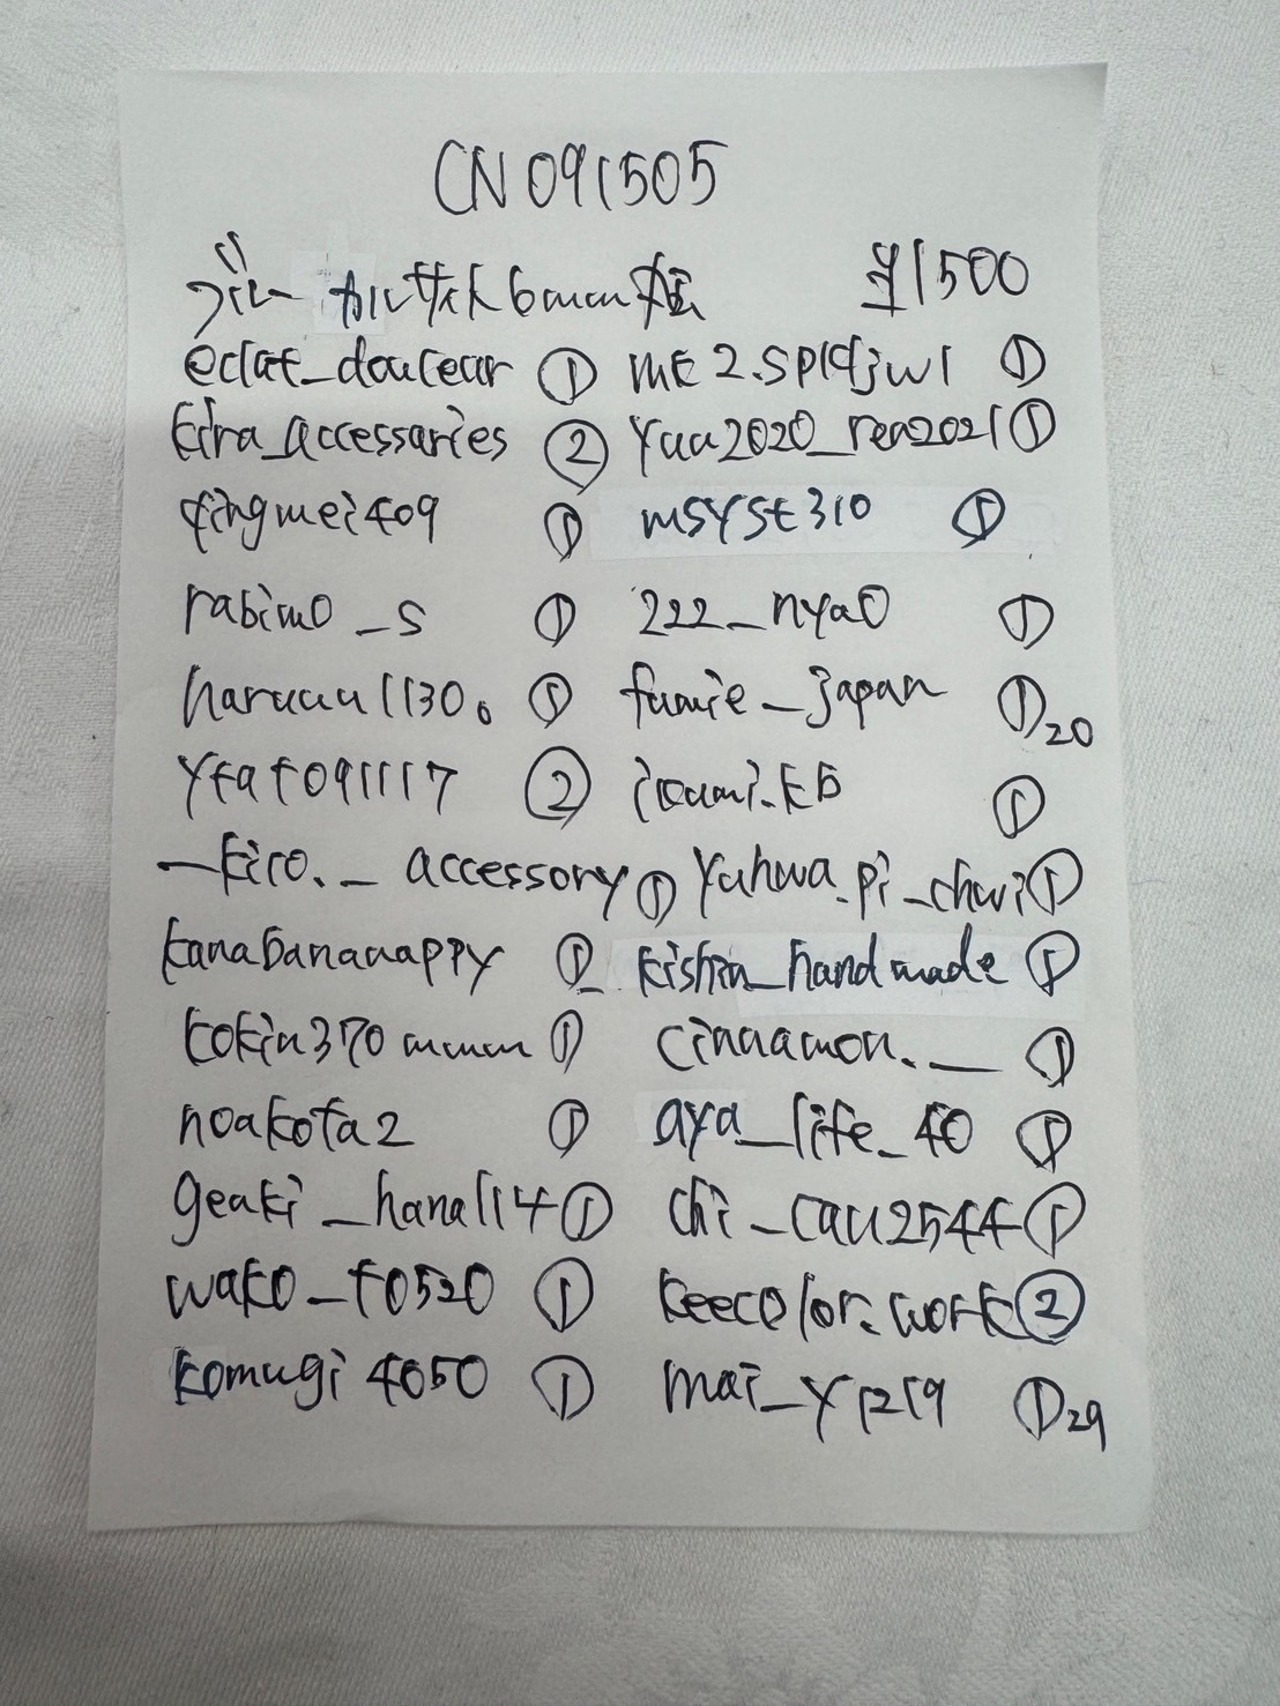 CN091505
ブルー カルサイト 6mm ¥1500
eclat_douceur ① mk2.splqjwl ①
kira_accessaries ② yuu2020_rea2021 ①
qingmei409 ① msyst310 ①
rabimo_s ① 222_nyao ①
haruuu1130。 ① fumie_japan ① 20
ytat091117 ② ①
_kiro._accessory ① yuhwa.pi_chwi ①
kanabananappy ① kishin_handmade ①
kokin370mmm ① cinnamon.__ ①
noakota2 ① aya_life_40 ①
geaki_hana1114 ① chi_cau2544 ①
wako_t0520 ① keecolor.work ②
komugi4050 ① mai_y1219 ① 29